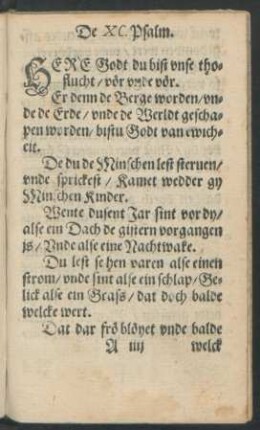 De XC. Psalm.
HERE Godt du bist vnse tho-
flucht / vör vnde vör.
Er denn de Berge worden / vn-
de de Erde / vnde de Werldt gescha-
pen worden / bistu Godt van ewich-
eit.
De du de Minschen lest steruen /
vnde sprickest / Kamet wedder gy
Minschen Kinder.
Wente dusent Jar sint vor dy /
alse ein Dach de gistern vorgangen
is / Vnde alse eine Nachtwake.
Du lest se hen varen alse einen
strom / vnde sint alse ein schlap / Ge-
lick alse ein Grass / dat doch balde
welcke wert.
Dat dar frö blöyet vnde balde
A iiij welck